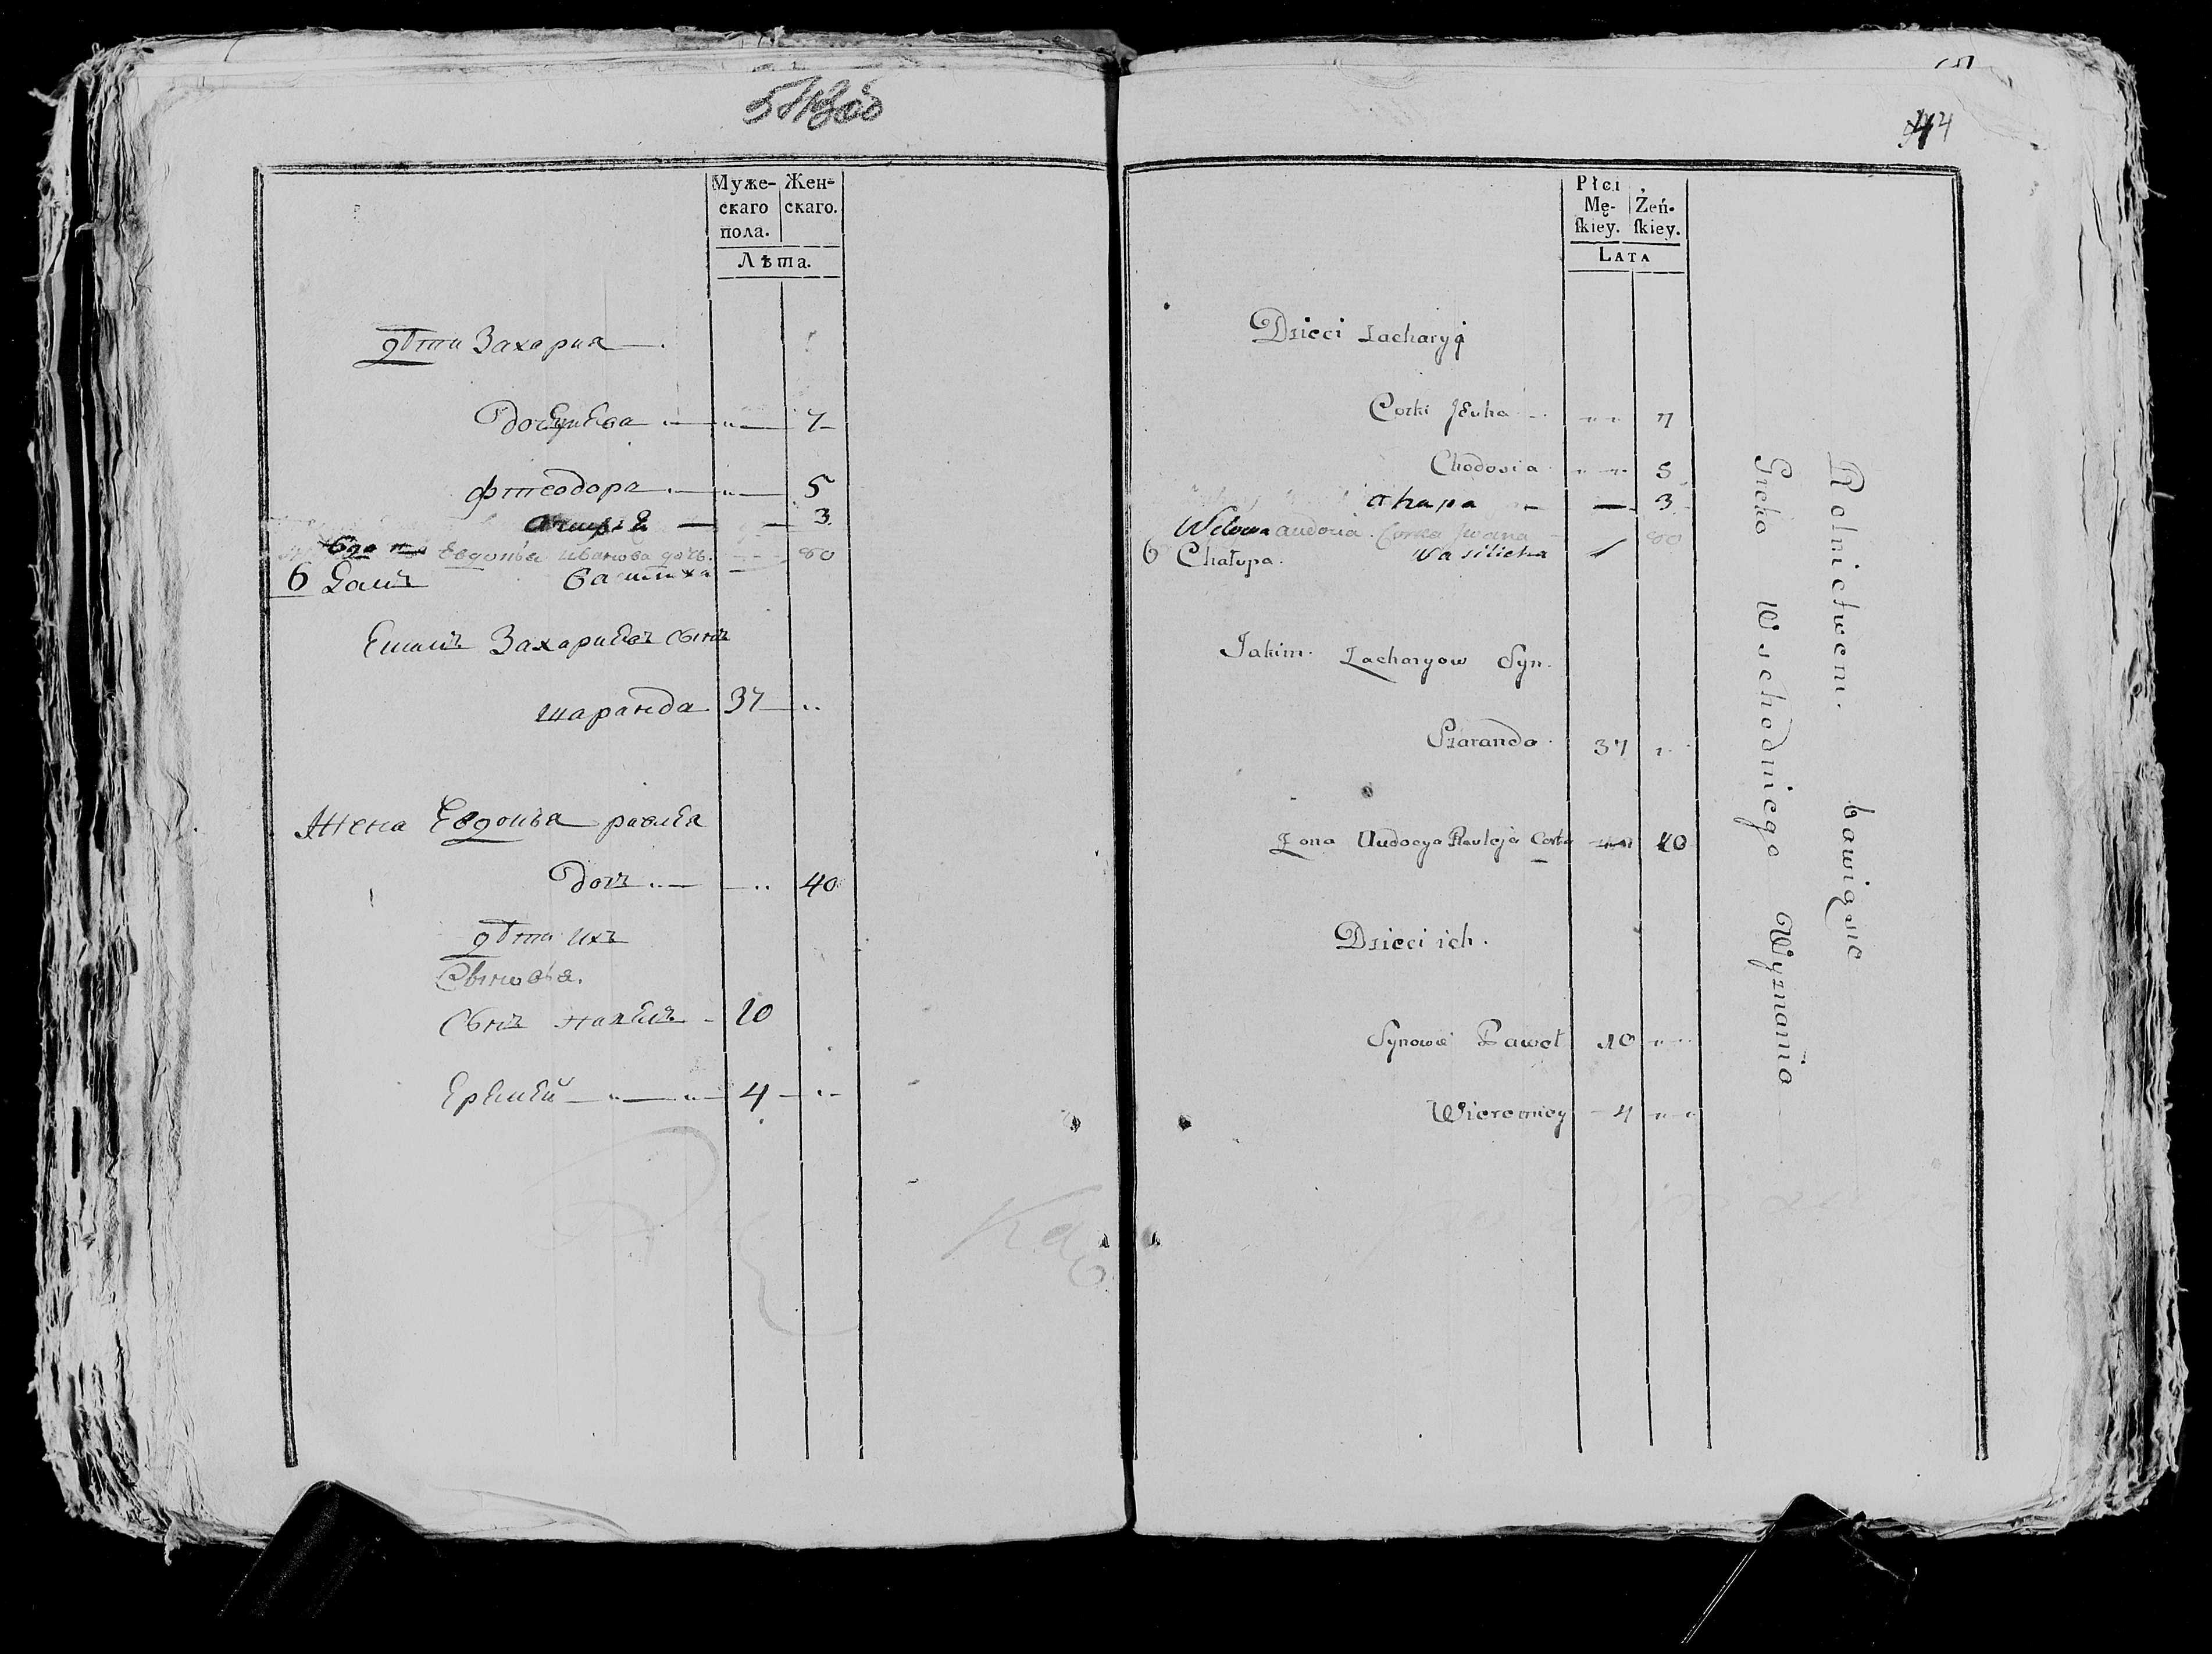 Муже-
скаго
пола.
Жен-
скаго.
Лѣта.
дѣти Захария
7
Фтеодора 5
3
Евдокѣя Иванова дочь. 80
6 Домъ
Екимъ Захариевъ сынъ
шаранда 37
Жена Евдокѣя павлея
дочь 40
дѣти ихъ
Сынъ Павелъ 10
Еремей 4
44
Płci
Mę-
ſkiey.
Żeń-
ſkiey.
LATA
Dzieci Zacharyi
Corki Jevha 7
Chodosia 5
ahapa 3
Wdowa audocia Corka Jwana 80
6 Chałupa. wasilicha
Jakim Zacharyow Syn.
Szaranda 37
Zona Audocya Pawleja Corka 40
Dzieci ich.
Synowie Paweł 10
Wieremiey 4
Rolnictwem bawiąsie
Gieko Wschodniego Wyznania